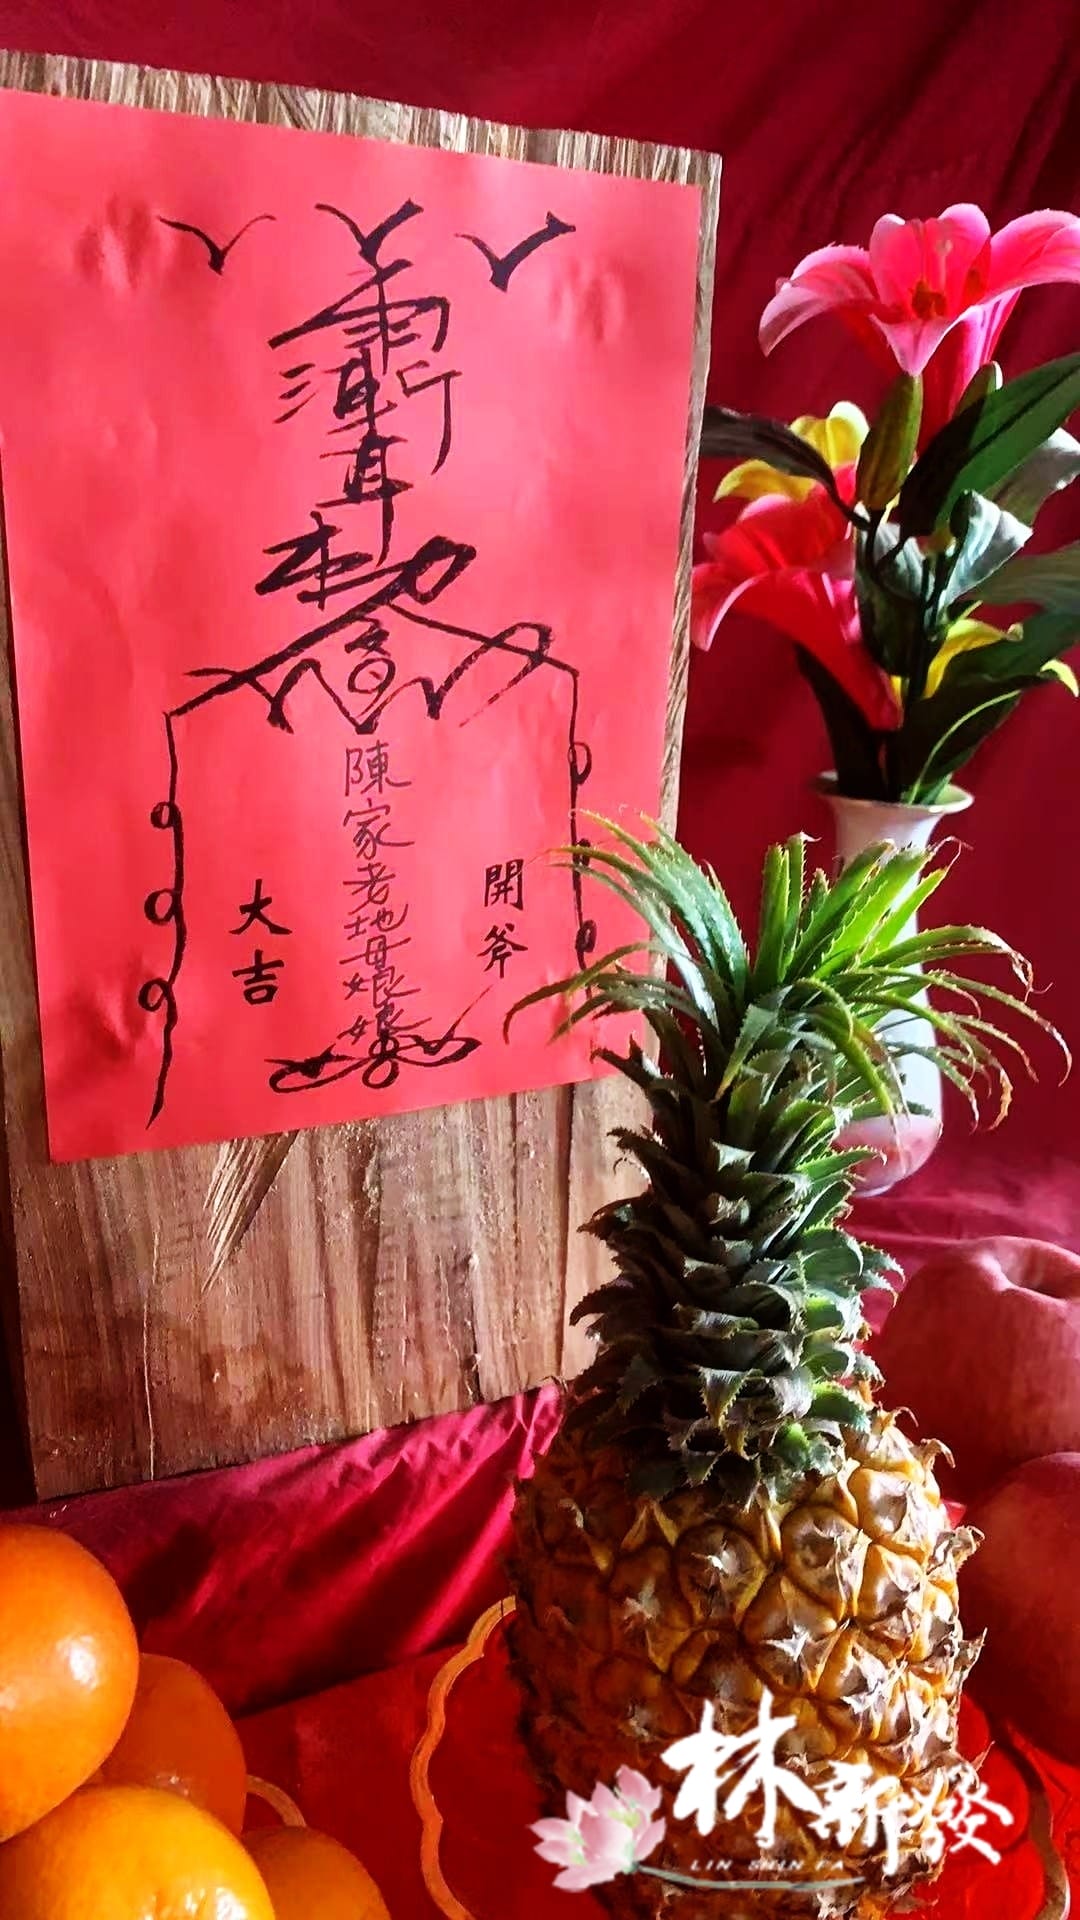 陳家老地母娘娘
開斧
大吉
林新發
LIN SHIN FA